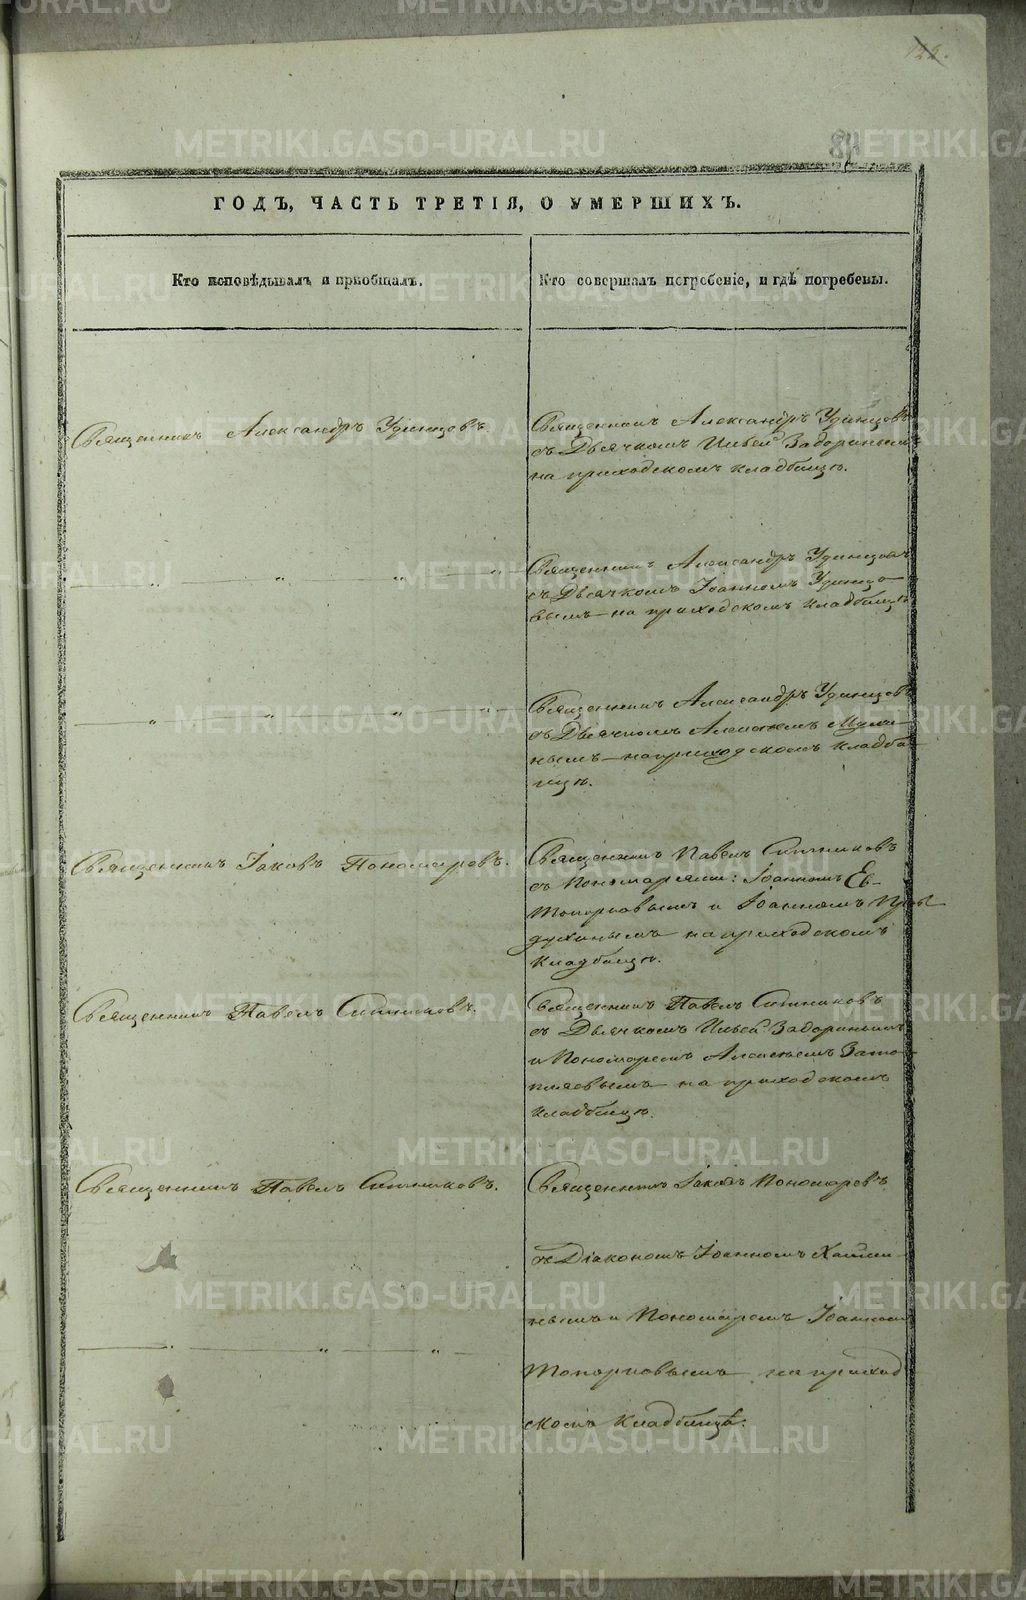 122.
ГОДЪ, ЧАСТЬ ТРЕТІЯ, О УМЕРШИХЪ.
Кто исповѣдывалъ и пріобщалъ.
Кто совершалъ погребеніе, и гдѣ погребены.
Священникъ Александръ Удинцовъ.
Священникъ Александръ Удинцовъ
съ Дьячкомъ Ильей Задоринымъ
на приходскомъ кладбищѣ.
— „ „ „ — „ —
Священникъ Александръ Удинцовъ
съ Дьячкомъ Іоанномъ Удинцо-
вымъ на приходскомъ кладбищѣ
— „ „ „ „ —
Священникъ Александръ Удинцовъ
съ Дьячкомъ Алексѣемъ
нымъ на приходскомъ кладби-
щѣ.
Священникъ Іаковъ Пономаревъ.
Священникъ Павелъ Ситниковъ
съ Пономарями: Іоанномъ
Топорковымъ и Іоанномъ
на приходскомъ
кладбищѣ.
Священникъ Павелъ Ситниковъ.
Священникъ Павелъ Ситниковъ
съ Дьячкомъ Ильей Задоринымъ
и Пономаремъ Алексѣемъ
на приходскомъ
кладбищѣ.
Священникъ Павелъ Ситниковъ.
Священникъ Іаковъ Пономаревъ
съ Діакономъ Іоанномъ
нымъ и Пономаремъ Іоанномъ
— „ — „ „ —
Топорковымъ на приход
скомъ кладбищѣ.
METRIKI.GASO-URAL.RU